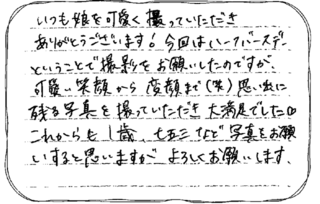 いつも娘を可愛く撮っていただき
ありがとうございます!今回はハーフバースデー
ということで撮影をお願いしたのですが、
可愛い笑顔から変顔まで(笑)思い出に
残る写真を撮っていただき大満足でした
これからも1歳、七五三など写真をお願
いすると思いますが よろしくお願いします。